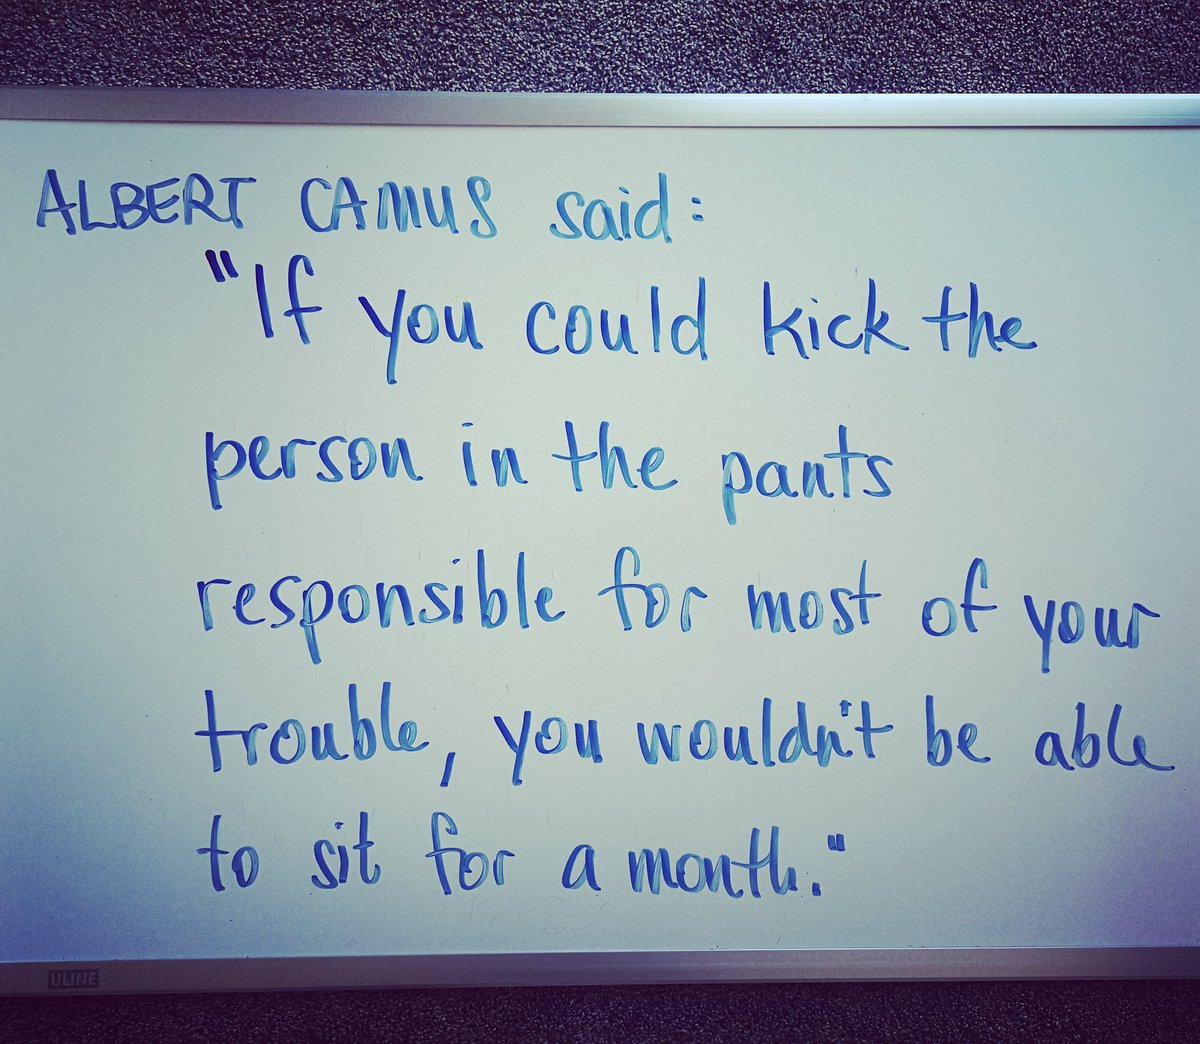 ALBERT CAMUS said:
"If you could kick the
person in the pants
responsible for most of your
trouble, you wouldn't be able
to sit for a month."
ULINE